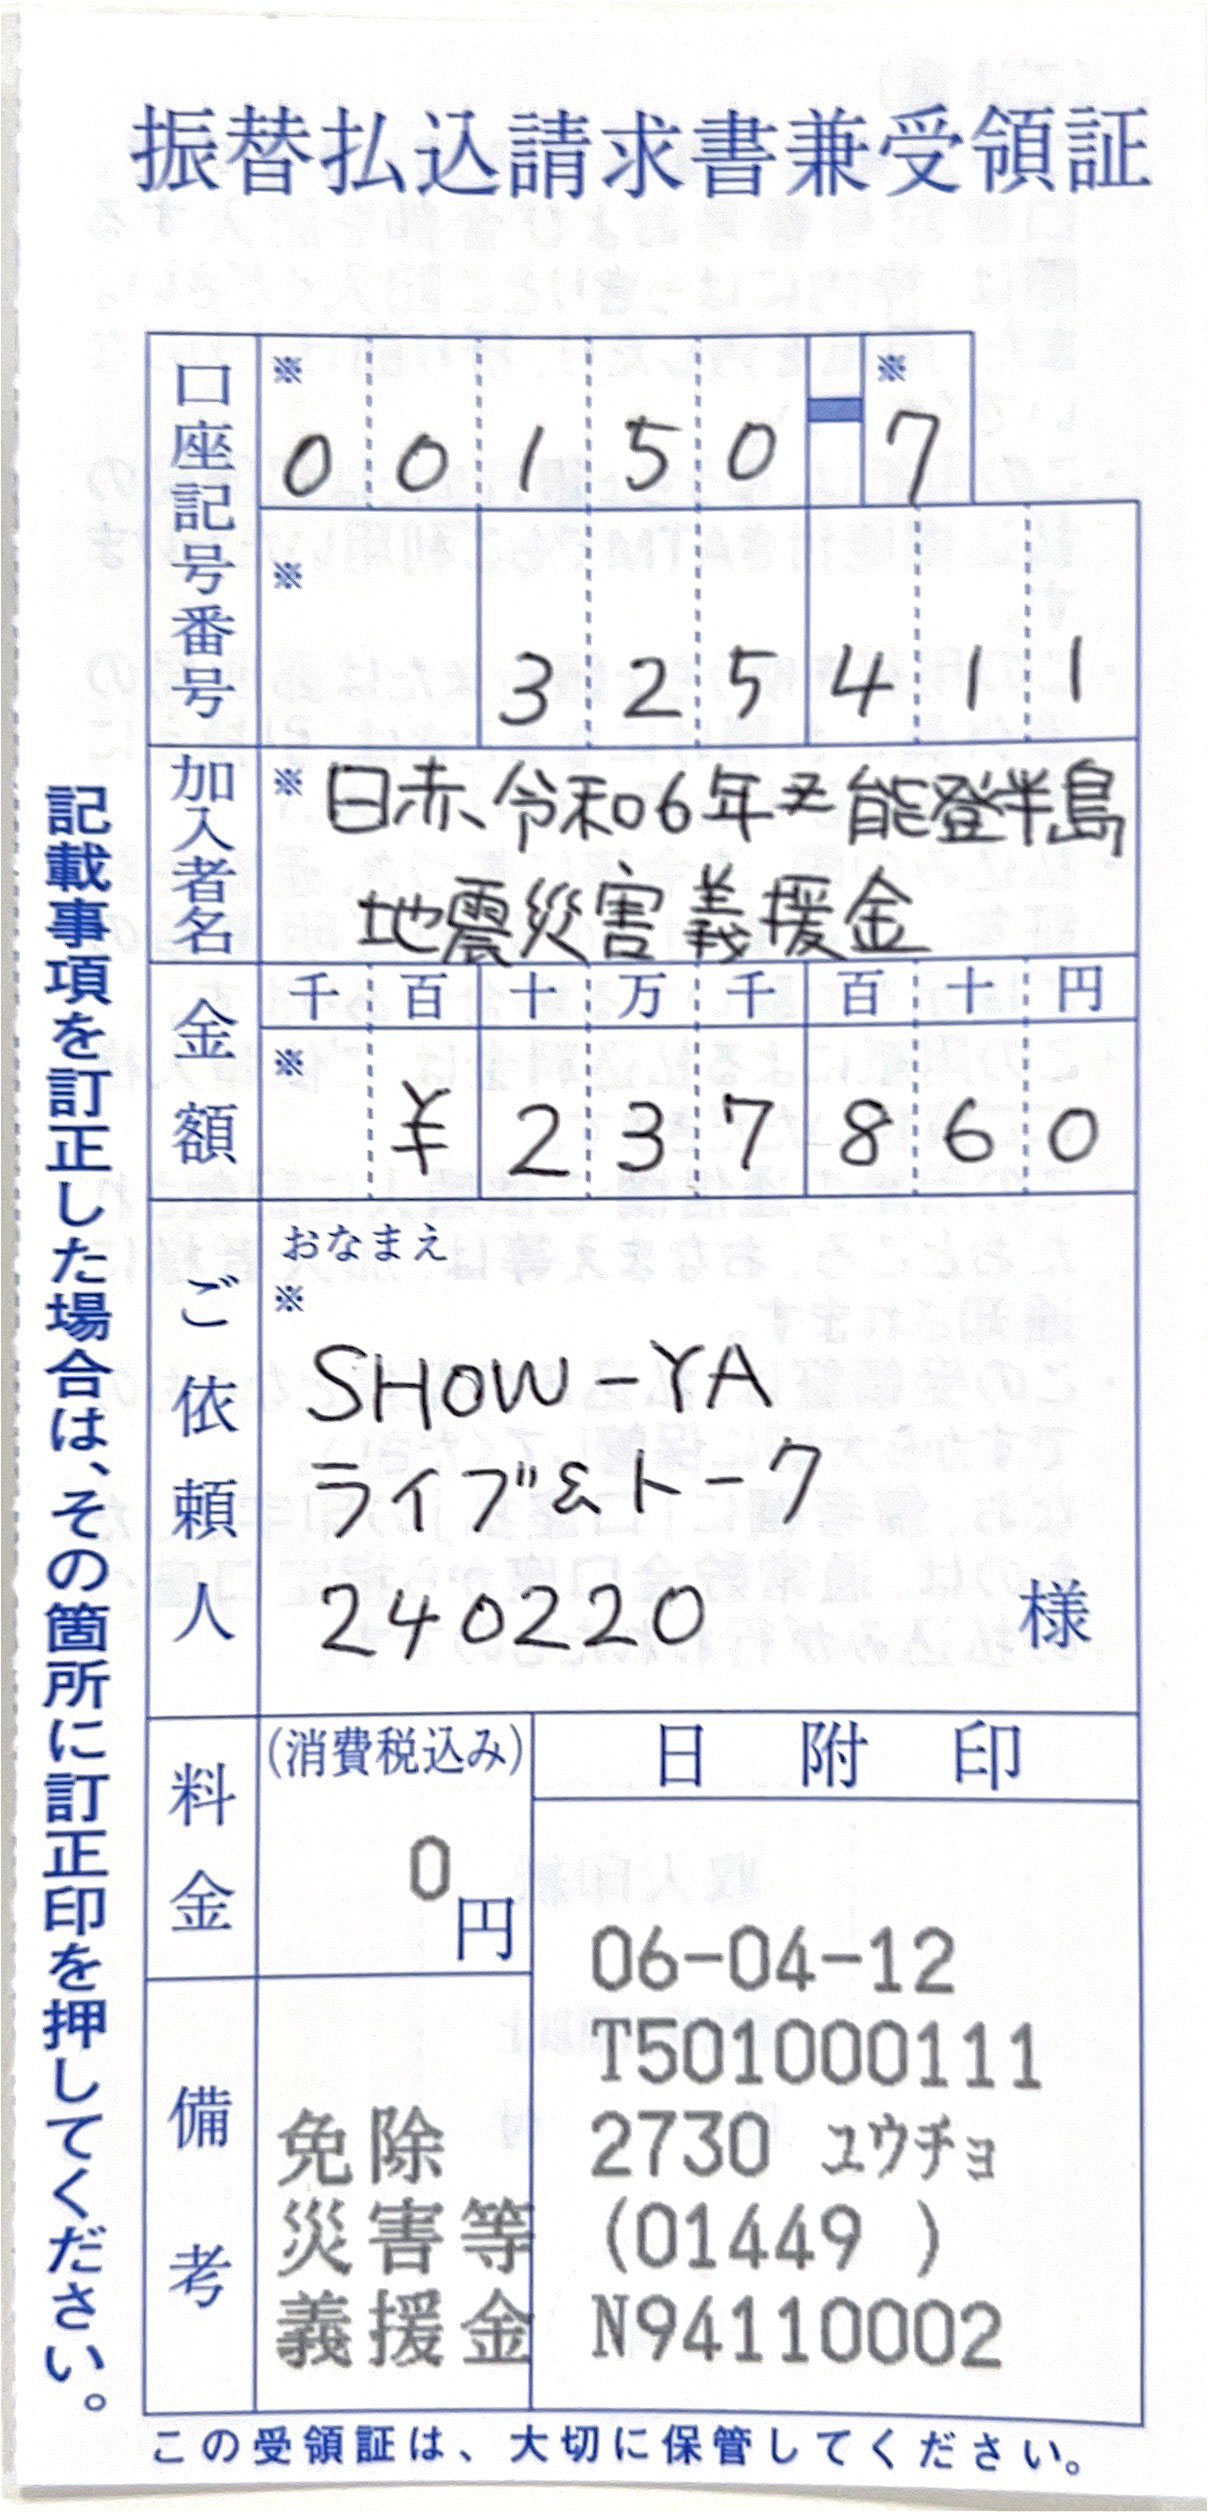 振替払込請求書兼受領証
口座記号番号
※ 00150-7 ※
※ 325411
加入者名
※ 日赤令和6年能登半島
地震災害義援金
金額
千百十万千百十円
※ ¥237860
ご依頼人
おなまえ
※
SHOW-YA
ライブ&トーク
240220
様
料金
(消費税込み)
0円
備考
免除
災害等
義援金
日附印
06-04-12
T501000111
2730 ユウチョ
(01449 )
N94110002
記載事項を訂正した場合は、その箇所に訂正印を押してください。
この受領証は、大切に保管してください。